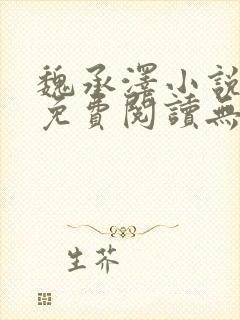 魏承澤小說
免費閱讀無
生芥